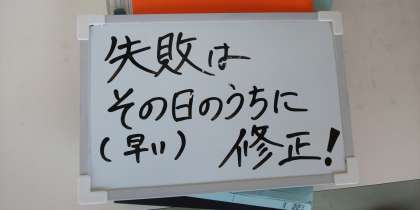 失敗は
その日のうちに
(早い) 修正!